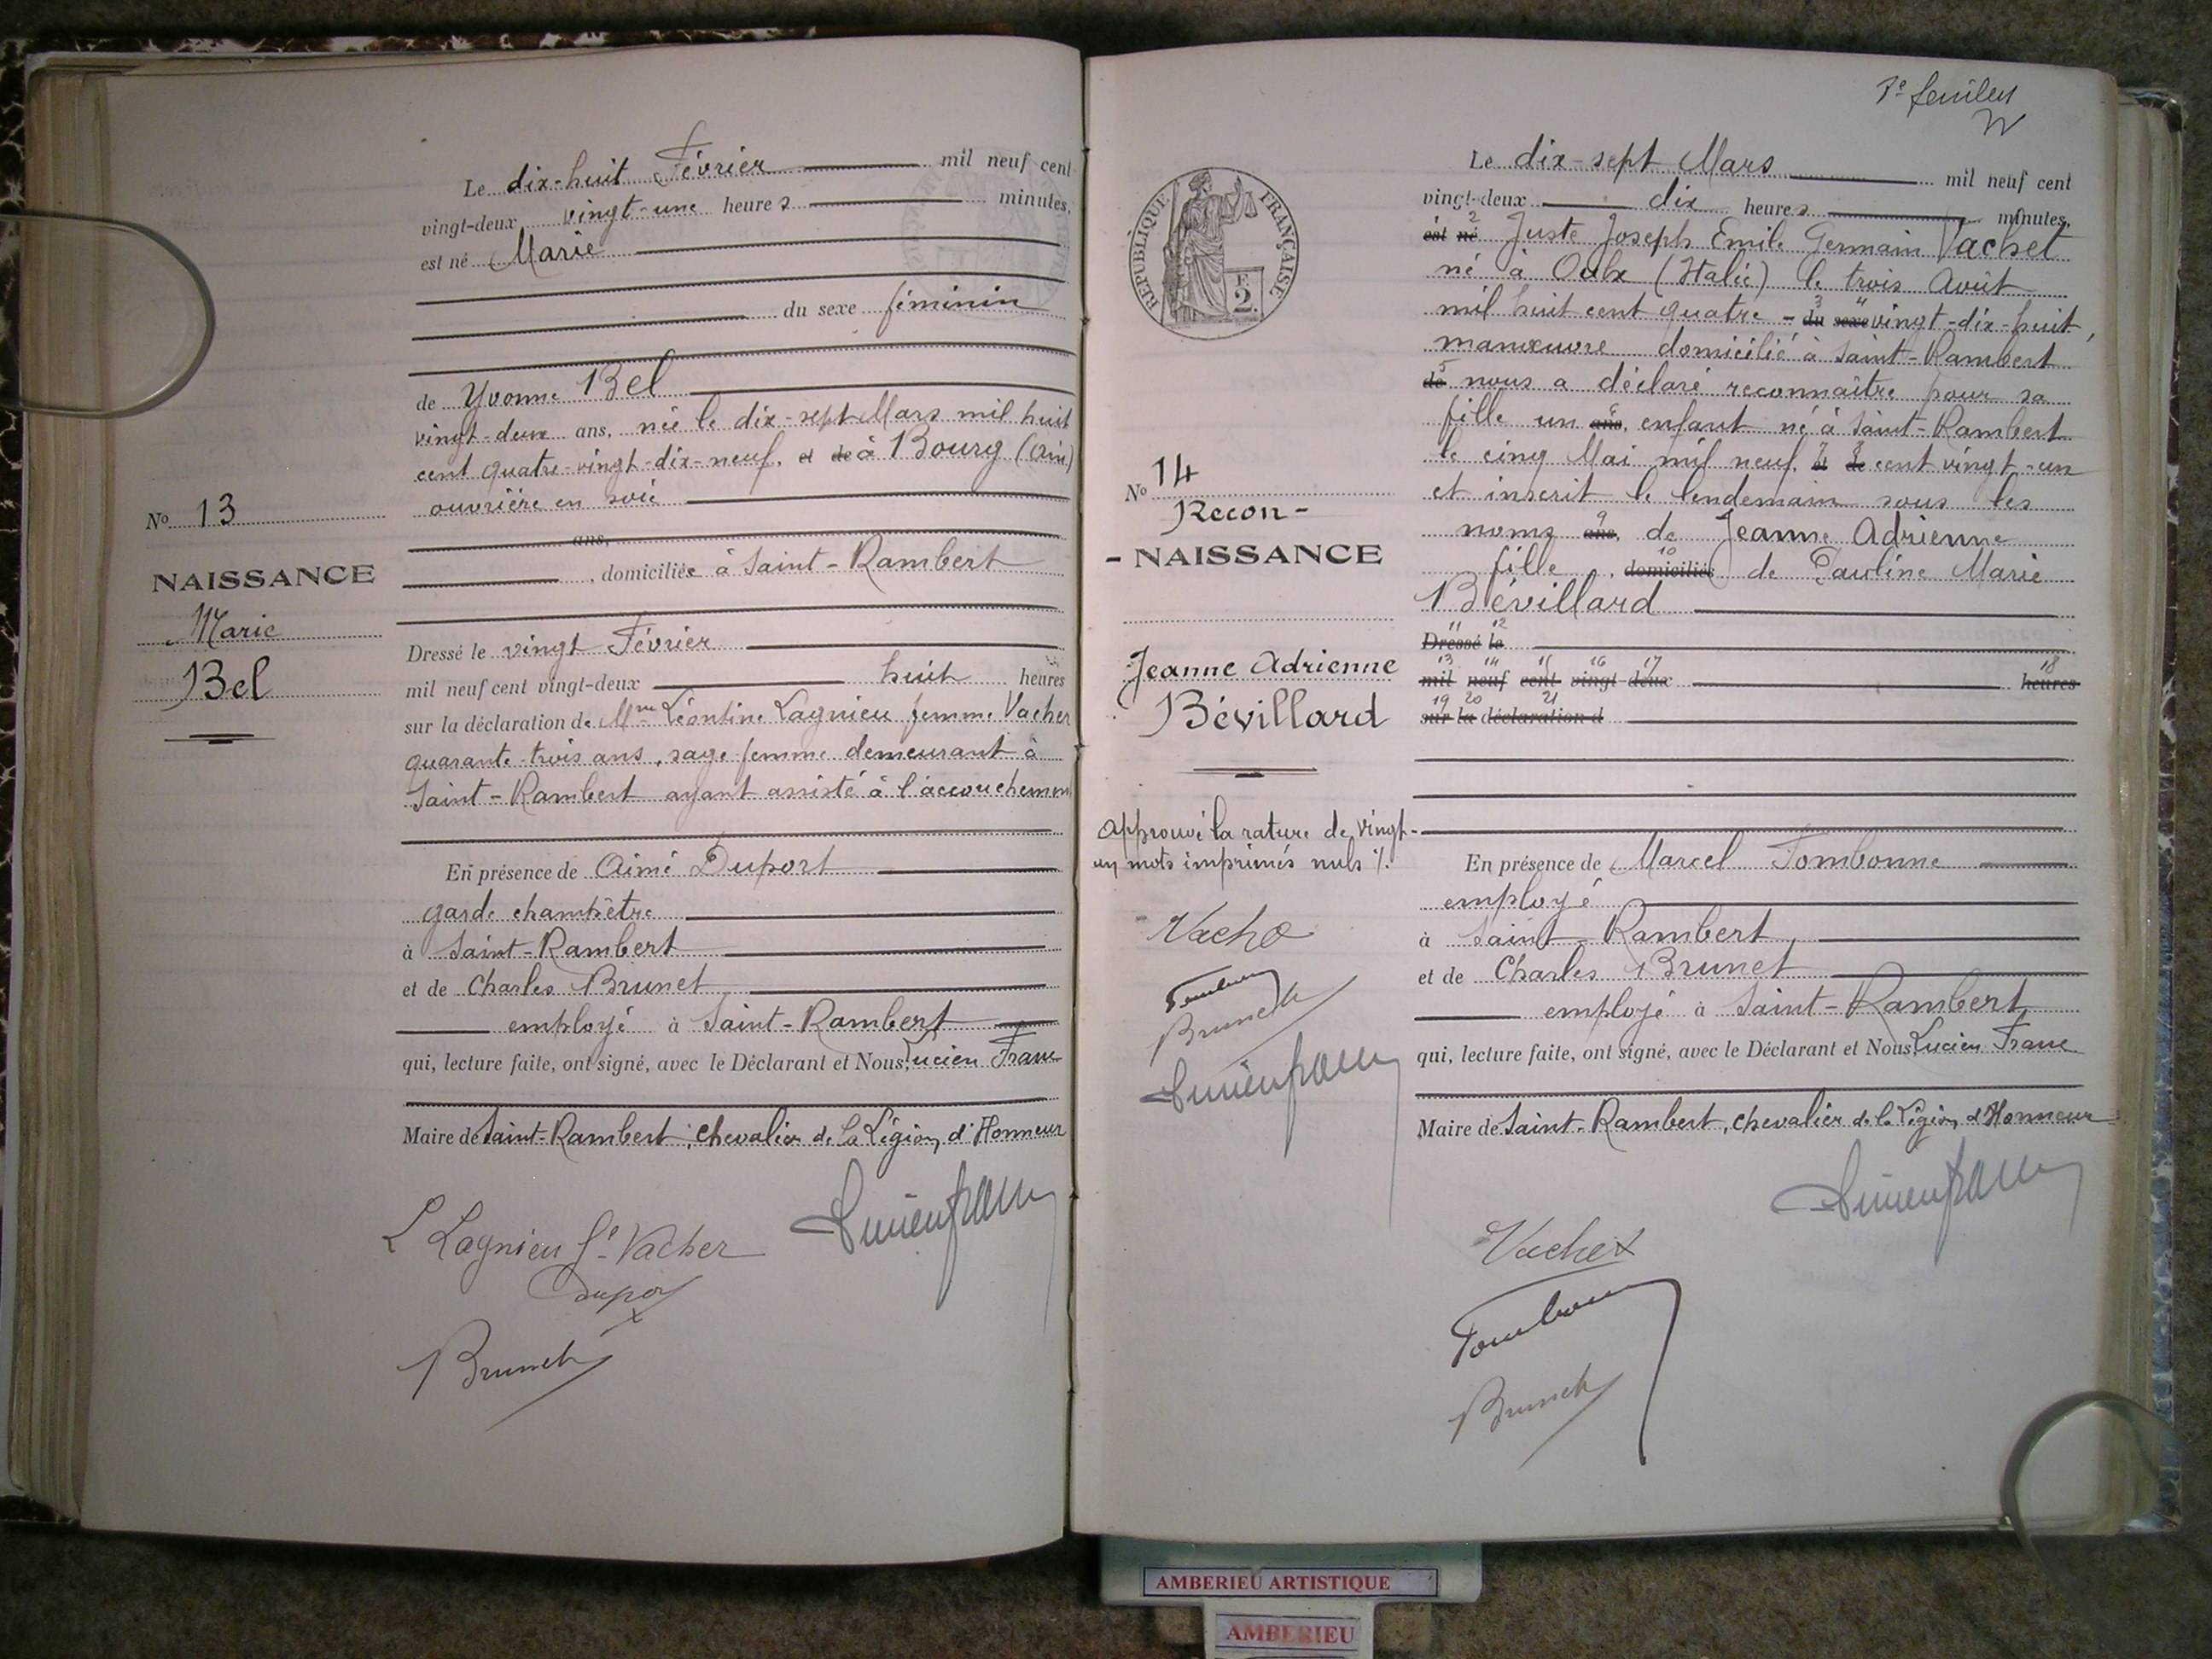 Le dix-huit Février mil neuf cent
vingt-deux vingt-une heures minutes,
est né Marie
du sexe féminin
de Yvonne Bel
vingt-deux ans, née le dix-sept Mars mil huit
cent quatre-vingt-dix-neuf, et de à Bourg (Ain)
ouvrière en soie
ans,
, domiciliée à Saint-Rambert
Dressé le vingt Février
mil neuf cent vingt-deux huit heures
sur la déclaration de Mme Léontine Lagnieu femme Vacher
quarante-trois ans, sage-femme demeurant à
Saint-Rambert ayant assisté à l'accouchement
En présence de Aimé Duport
garde champêtre
à Saint-Rambert
et de Charles Brunet
employé à Saint-Rambert
qui, lecture faite, ont signé, avec le Déclarant et Nous, Lucien Franc
Maire de Saint-Rambert, chevalier de la Légion d'Honneur
L Lagnieu fe Vacher
Lucien franc
Duport
Brunet
No 13
NAISSANCE
Marie
Bel
Le dix-sept Mars mil neuf cent
vingt-deux dix heures minutes,
est né Juste Joseph Emile Germain Vachet
né à Oulx (Italie) le trois Août
mil huit cent quatre-du sexe vingt-dix-huit,
manœuvre domicilié à Saint-Rambert
de nous a déclaré reconnaître pour sa
fille un ans, enfant né à Saint-Rambert
le cinq Mai mil neuf et de cent vingt-un
et inscrit le lendemain sous les
noms ans, de Jeanne Adrienne
fille, domiciliés de Pauline Marie
Bévillard
Dressé le
mil neuf cent vingt-deux heures
sur la déclaration d
En présence de Marcel Fombonne
employé
à Saint-Rambert,
et de Charles Brunet
employé à Saint-Rambert
qui, lecture faite, ont signé, avec le Déclarant et Nous Lucien Franc
Maire de Saint-Rambert, chevalier de la Légion d'Honneur
Lucien franc
Vachet
Fombonne
Brunet
RÉPUBLIQUE FRANÇAISE
F
2.
No 14
Recon-
- NAISSANCE
Jeanne Adrienne
Bévillard
Approuvé la rature de vingt-
un mots imprimés nuls %.
Vachet
Brunet
Lucien franc
AMBERIEU ARTISTIQUE
AMBERIEU